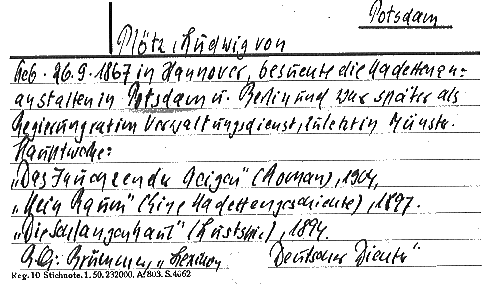 Potsdam
Plötz, Ludwig von
Geb. 26.9.1867 in Hannover, besuchte die Kadettenan=
anstalten in Potsdam u. Berlin und war später als
Regierungsrat im Verwaltungsdienst, zuletzt in Münster.
Hauptwerke:
„Das Jauchzende (Roman), 1904,
„Mein Raum" (Eine Kadettengeschichte), 1897.
„Die Schlangenhaut" (Lustspiel), 1894.
Brümmer, „Lexikon Deutscher Dichter"
Reg. 10 Stichnote. 1. 50. 232000. Af 803. S. 4662